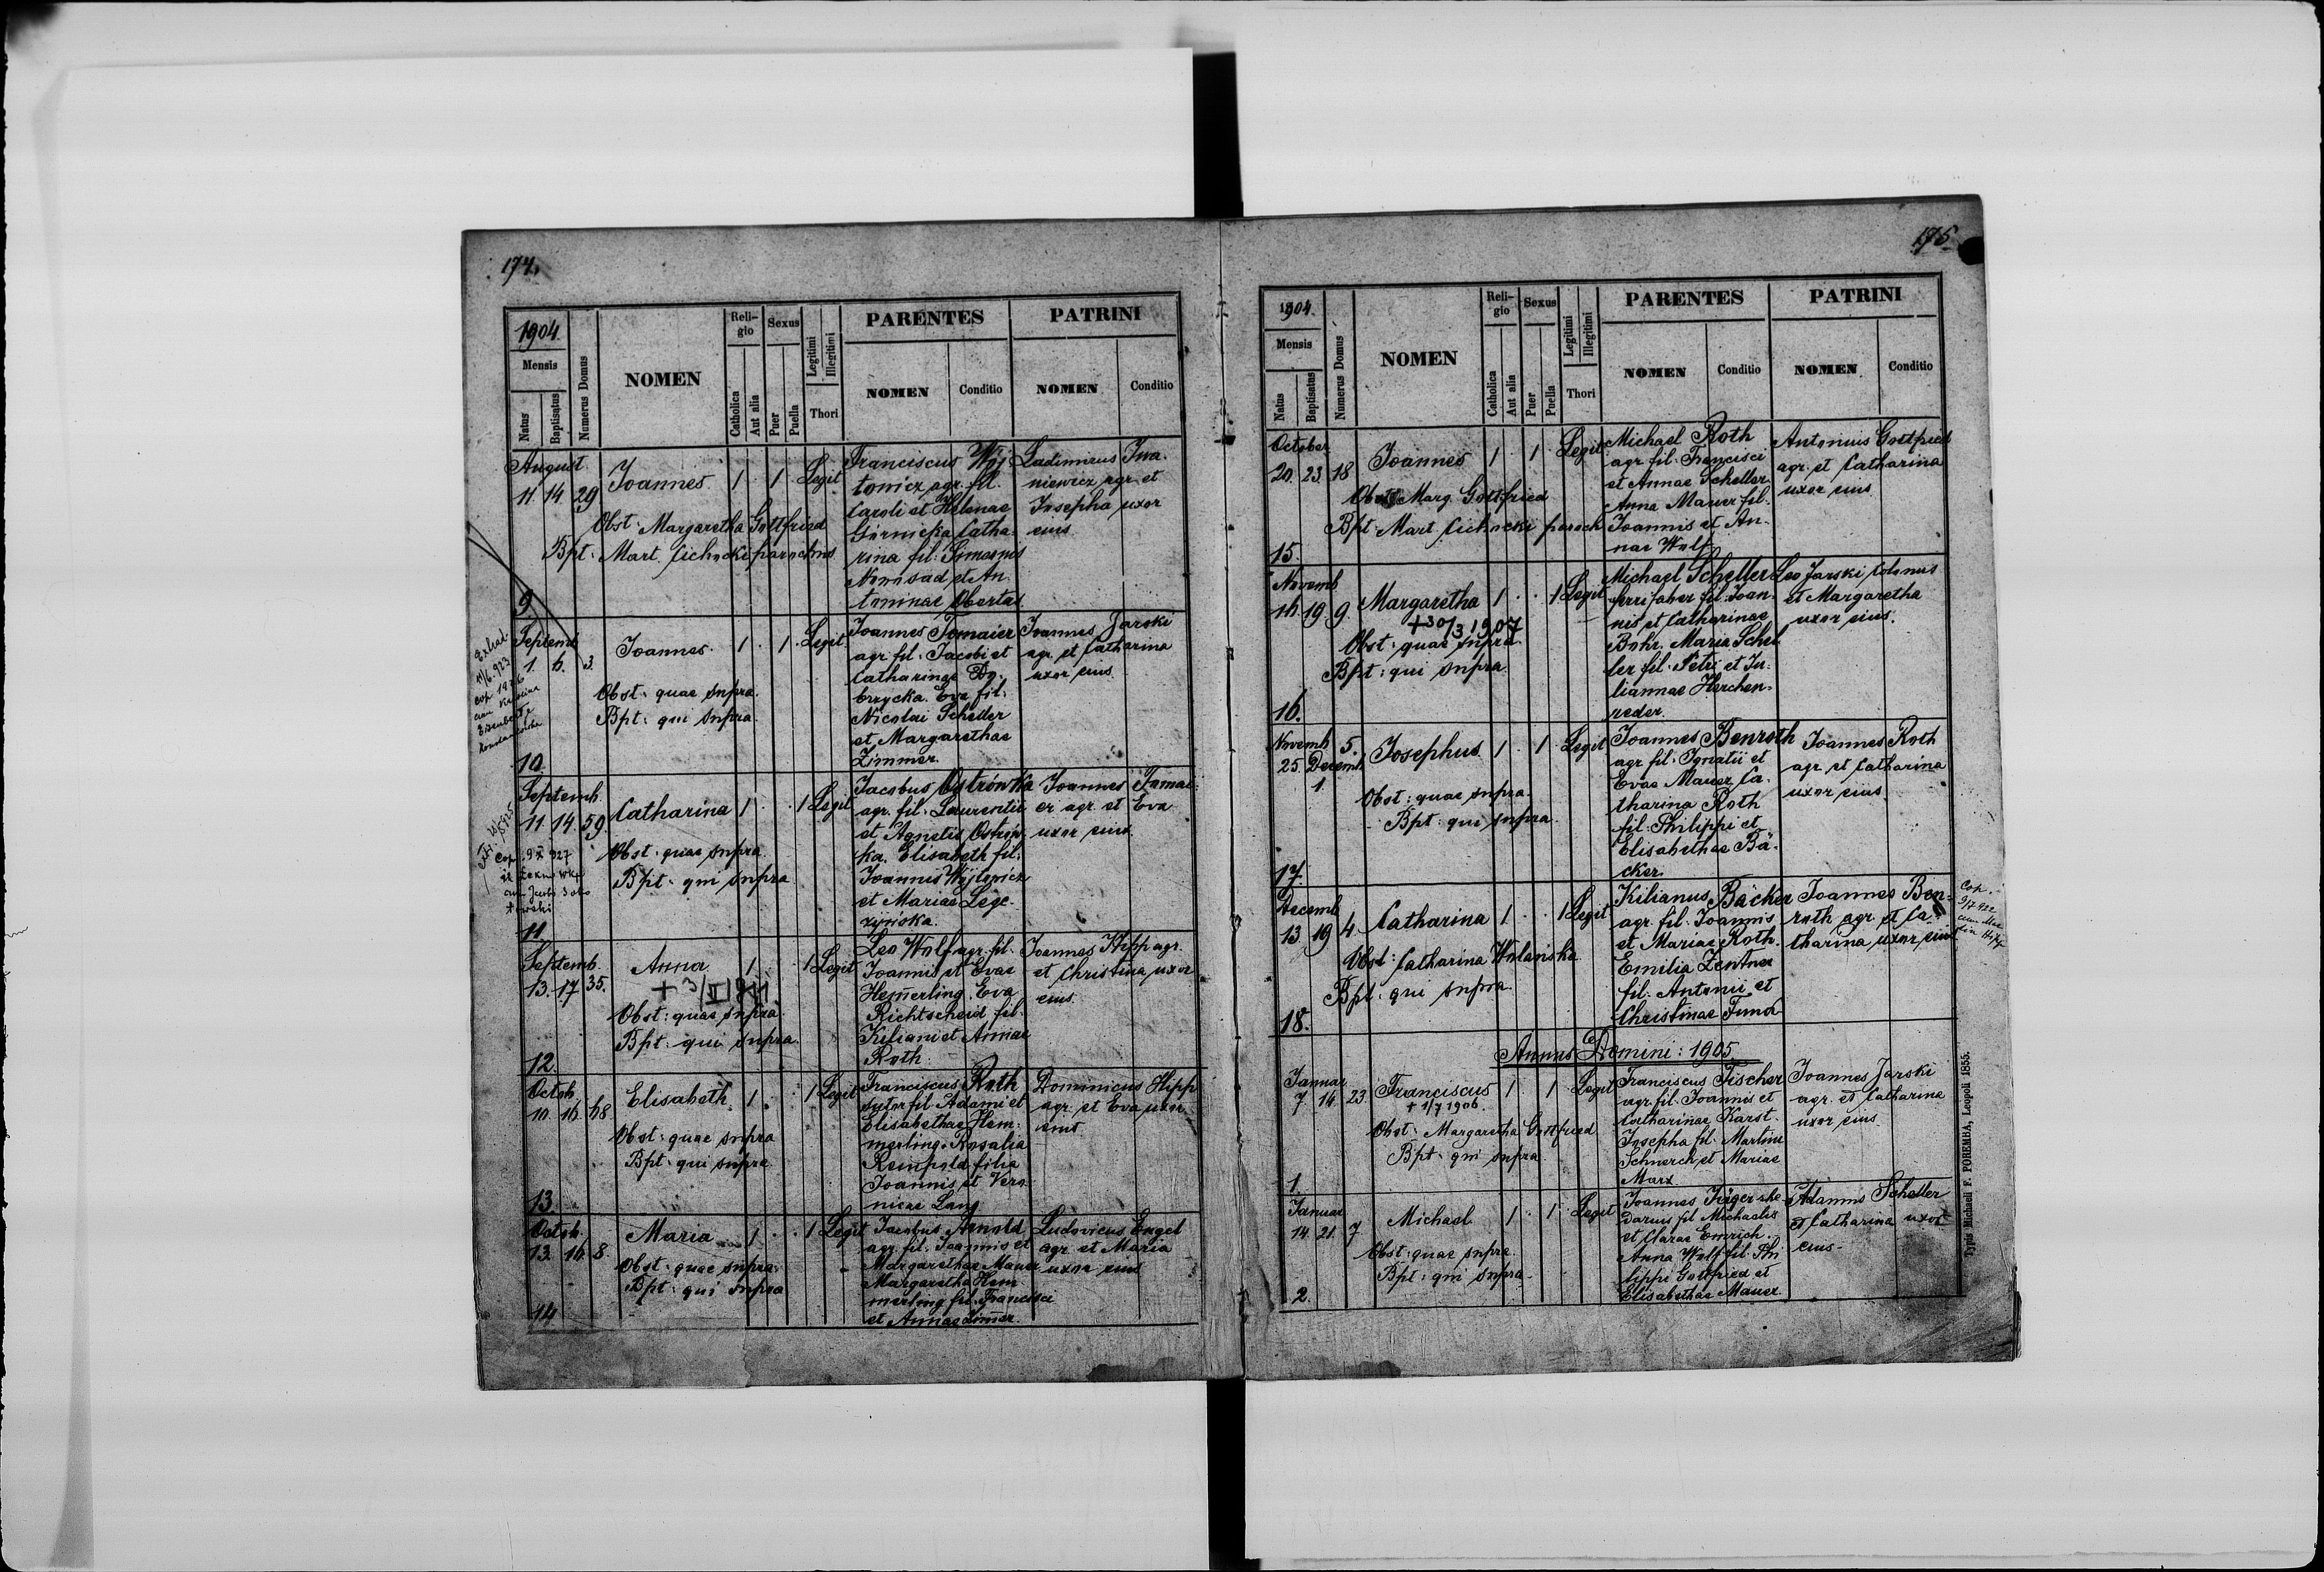 174.
1904.
Mensis
Natus
Baptisatus
Numerus Domus
NOMEN
Reli-
gio
Catholica
Aut alia
Sexus
Puer
Puella
Legitimi
Illegitimi
Thori
PARENTES
NOMEN
Conditio
PATRINI
NOMEN
Conditio
August
11. 14 29
Joannes 1 1 Legit
Obst: Margaretha Gottfried
Bpt: Mart. Cichocki parochus
9
Franciscus Woj-
towicz agr. fil.
Caroli et Helenae
Górnicka Catha-
rina fil:
Nowosad et An-
toninae Obertas
Ladimirus Iwa-
niewicz agr. et
Josepha uxor
eius
Septemb
1. 6. 3.
Joannes 1 1 Legit
Obst: quae supra.
Bpt: qui supra.
10
Joannes Tomaier
agr. fil. Jacobi et
Catharinae Do-
brzycka. Eva fil:
Nicolai Scheller
et Margarethae
Zimmer.
Joannes Jarski
agr. et Catharina
uxor eius.
Septemb.
11. 14. 59.
Catharina 1 1 Legit
Obst: quae supra
Bpt: qui supra
11
Jacobus Ostrówka
agr. fil. Laurentii
et Agnetis Ostrów-
ka. Elisabeth fil:
Joannis Wojtowicz
et Mariae Lege-
zyńska.
Joannes Tomai-
er agr. et Eva
uxor eius.
Cop. 9 X 927
Septemb.
13. 17 35.
Anna 1 1 Legit
Obst: quae supra.
Bpt: qui supra.
12.
Leo Wolf agr. fil.
Joannis et Evae
Hem̄erling. Eva
Richtscheid fil.
Kiliani et Annae
Roth.
Joannes Hipp agr.
et Christina uxor
eius.
Octob.
10. 16. 68
Elisabeth. 1 1 Legit
Obst: quae supra
Bpt: qui supra
13
Franciscus Roth
sutor fil. Adami et
Elisabethae Hem-
merling. Rosalia
Reinpold filia
Joannis et Vero-
nicae Lang
Dominicus Hipp
agr. et Eva uxor
eius
Octob.
13. 16. 8.
Maria 1 1 Legit
Obst: quae supra.
Bpt: qui supra
14
Jacobus Arnold
agr. fil. Joannis et
Margarethae Mauer
Margaretha Hem-
merling fil. Francisci
et Annae Zim̄er.
Ludovicus Engel
agr. et Maria
uxor eius
175
1904.
Mensis
Natus
Baptisatus
Numerus Domus
NOMEN
Reli-
gio
Catholica
Aut alia
Sexus
Puer
Puella
Legitimi
Illegitimi
Thori
PARENTES
NOMEN
Conditio
PATRINI
NOMEN
Conditio
October
20. 23. 18
Joannes 1 1 Legit
Obst: Marg. Gottfried
Bpt: Mart Cichocki paroch
15.
Michael Roth
agr. fil. Francisci
et Annae Scheller
Anna Mauer fil.
Joannis et An-
nae Wolf
Antonius Gottfried
agr. et Catharina
uxor eius
Novemb
16. 19. 9.
Margaretha 1 1 Legit
+ 30/3 1907
Obst: quae supra
Bpt: qui supra.
16.
Michael Scheller
ferrifaber fil. Joan-
nis et Catharinae
Bohr. Maria Schel-
ler fil. Petri et Ju-
liannae Herchen-
reder.
Leo Jarski colonus
et Margaretha
uxor eius.
Novemb 5.
25. Decemb.
1.
Josephus 1 1 Legit
Obst: quae supra.
Bpt: qui supra.
17.
Joannes Benroth
agr. fil. Ignatii et
Evae Mauer, Ca-
tharina Roth
fil. Philippi et
Elisabethae Bä-
cker.
Joannes Roth
agr. et Catharina
uxor eius.
Decemb
13. 19 4.
Catharina 1 1 Legit
Obst: Catharina Wolańska
Bpt: qui supra
18.
Kilianus Bäcker
agr. fil. Joannis
et Mariae Roth.
Emilia Zentner
fil. Antonii et
Christinae Fund
Joannes Ben-
roth agr. et Ca-
tharina uxor eius
Cop.
9/7 922
Annus Domini: 1905.
Januar
7 14 23
Franciscus 1 1 Legit
+ 1/7 1906.
Obst: Margaretha Gottfried
Bpt: qui supra
1.
Franciscus Fischer
agr. fil. Joannis et
Catharinae Karst.
Josepha fil. Martini
Schnerch et Mariae
Marx
Joannes Jarski
agr. et Catharina
uxor eius.
Januar
14. 21. 7
Michael 1 1 Legit
Obst: quae supra.
Bpt: qui supra.
2.
Joannes Jaiger
darius fil. Michaelis
et Clarae Emrich.
Anna Wolf fil. Phi-
lippi Gottfried et
Elisabethae Mauer
Adamus Scheller
et Catharina uxor
eius.
Typis Michaeli F. POREMBA, Leopoli 1855.